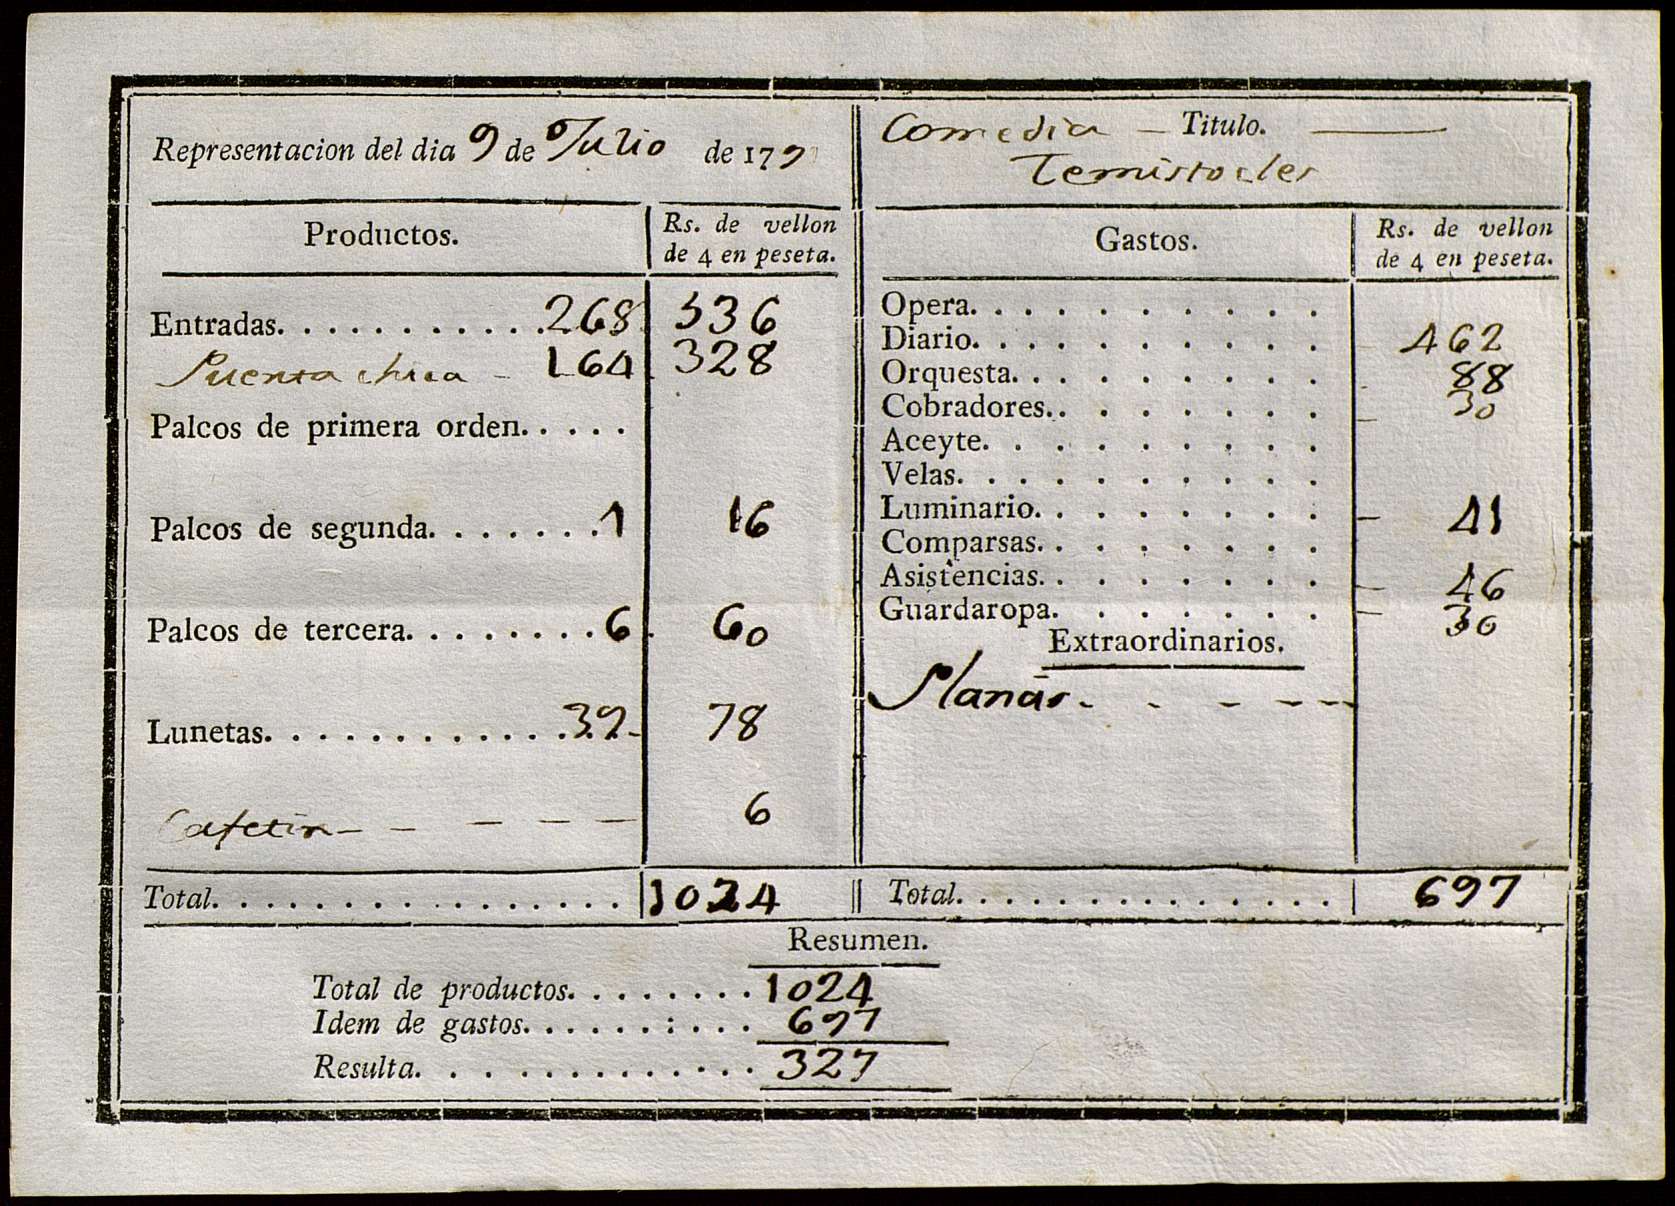 Representacion del dia 9 de Julio de 179
Comedia — Titulo. —
Temistocles
Productos.
Rs. de vellon
de 4 en peseta.
Entradas. . . . . . . . . . . 268 536
Puerta chica - 164 328
Palcos de primera orden. . . . .
Palcos de segunda. . . . . . . 1 16
Palcos de tercera. . . . . . . . 6 60
Lunetas. . . . . . . . . . . . . 39 78
Cafetin - - - - - - 6
Total. . . . . . . . . . . . . . . . 1024
Gastos.
Rs. de vellon
de 4 en peseta.
Opera. . . . . . . . . .
Diario. . . . . . . . . . 462
Orquesta. . . . . . . . . 88
Cobradores. . . . . . . . 30
Aceyte. . . . . . . . . .
Velas. . . . . . . . . . .
Luminario. . . . . . . . 41
Comparsas. . . . . . . .
Asistencias. . . . . . . . 46
Guardaropa. . . . . . . 30
Extraordinarios.
Planas - - - - - -
Total. . . . . . . . . . . . . . . 697
Resumen.
Total de productos. . . . . . . . 1024
Idem de gastos. . . . . . : . . . 697
Resulta. . . . . . . . . . . . . 327